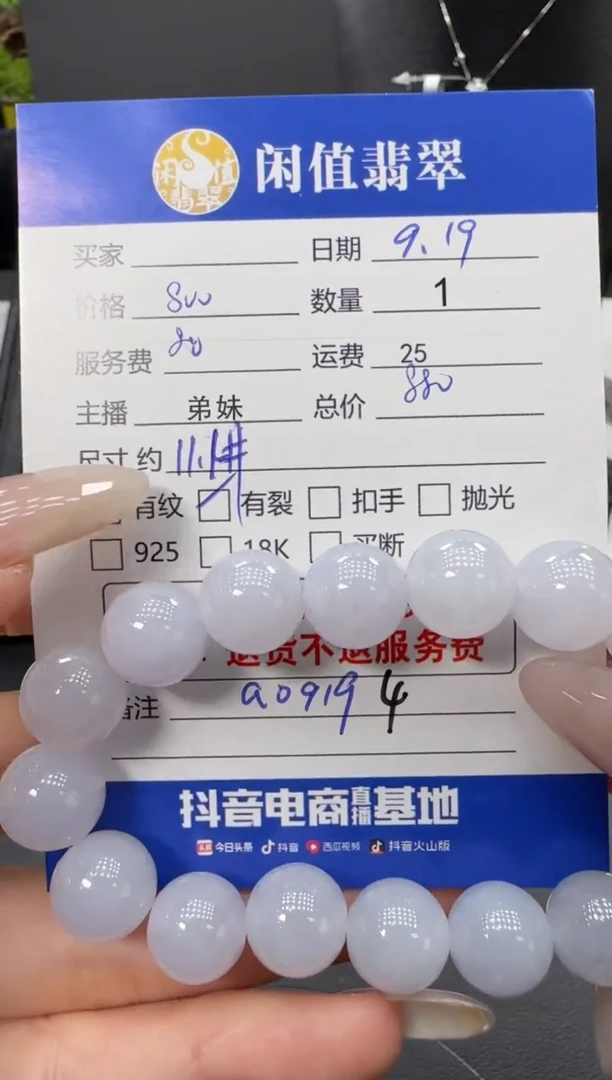 闲值翡翠
闲值翡翠
买家 日期 9.19
价格 800 数量 1
服务费 80 运费 25
主播 弟妹 总价 880
尺寸 约 11.1#
有纹 有裂 扣手 抛光
925 18K 买断
退货不退服务费
备注 a0919 4
抖音电商直播基地
头条 今日头条 抖音 西瓜视频 抖音火山版